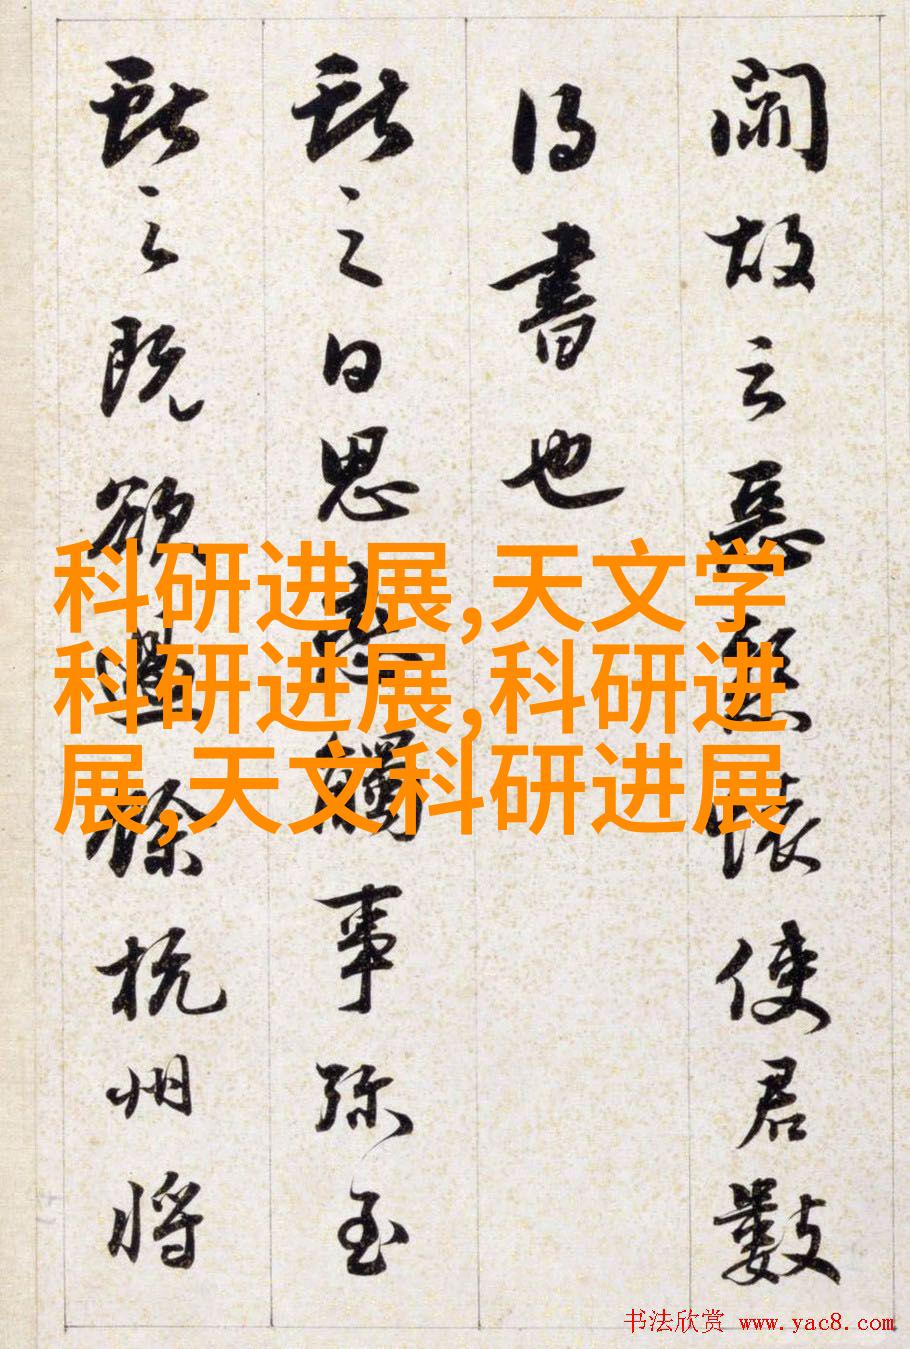 故云惡懸懷使君數
得書也
獻之白思戀觸事弥至
獻之既欲過餘杭州將
科研进展,天文学
科研进展,科研进
展,天文科研进展
书法欣赏 www.yac8.com